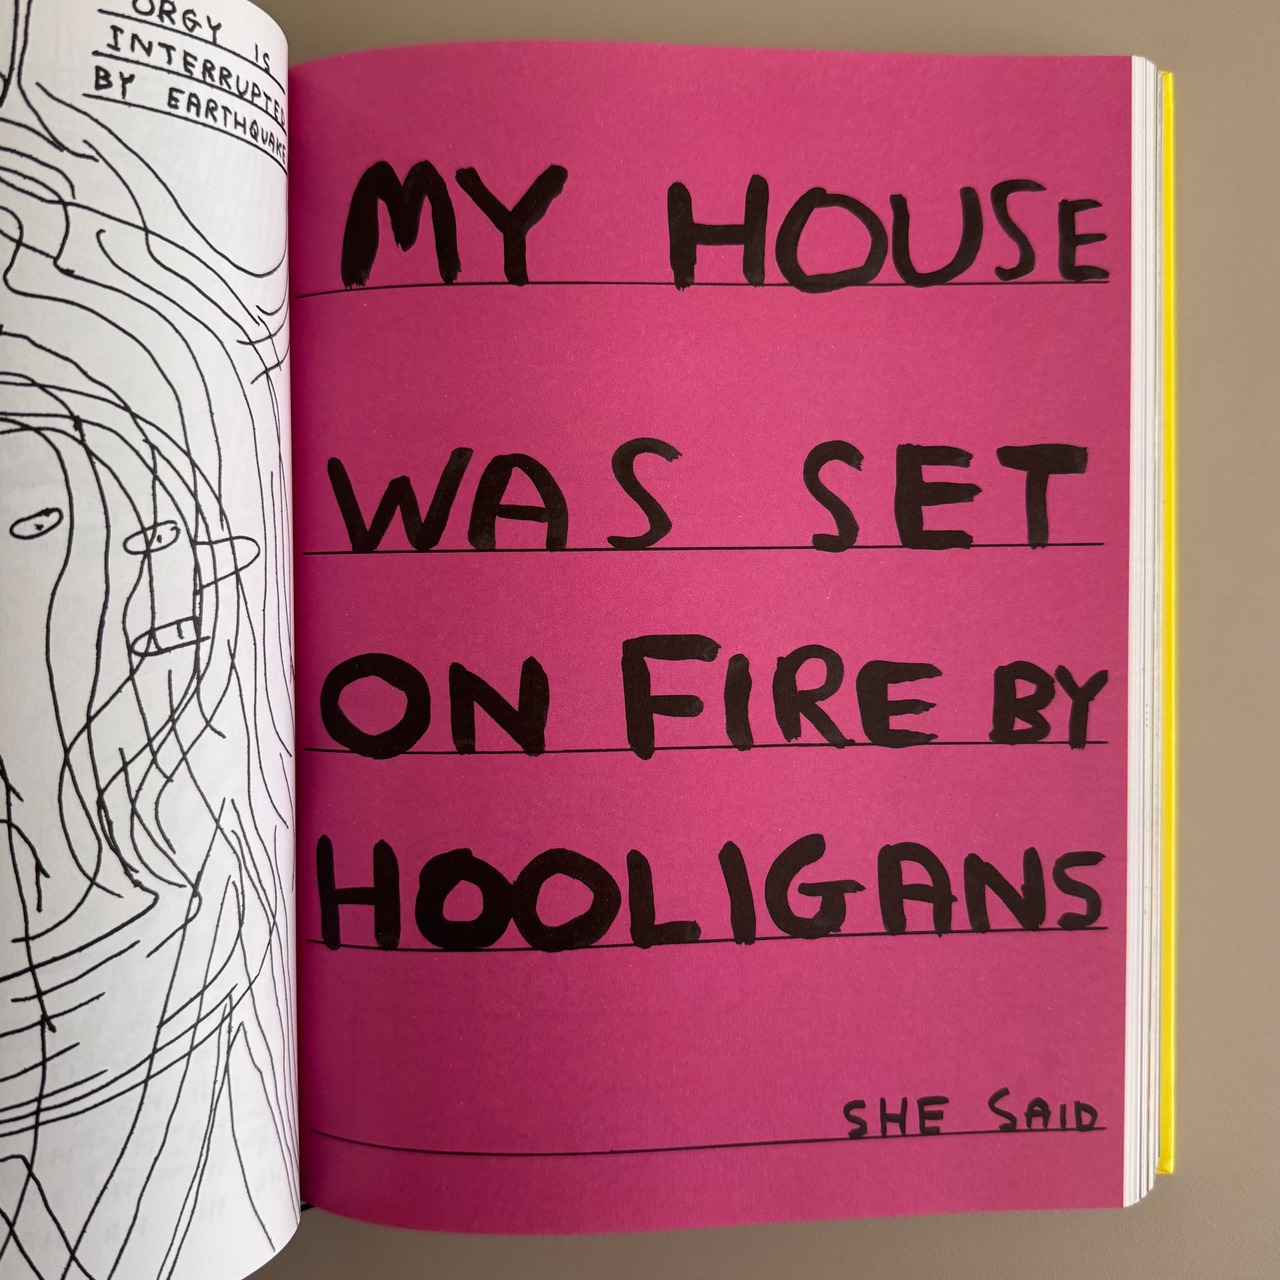 ORGY IS
INTERRUPTED
BY EARTHQUAKE
MY HOUSE
WAS SET
ON FIRE BY
HOOLIGANS
SHE SAID